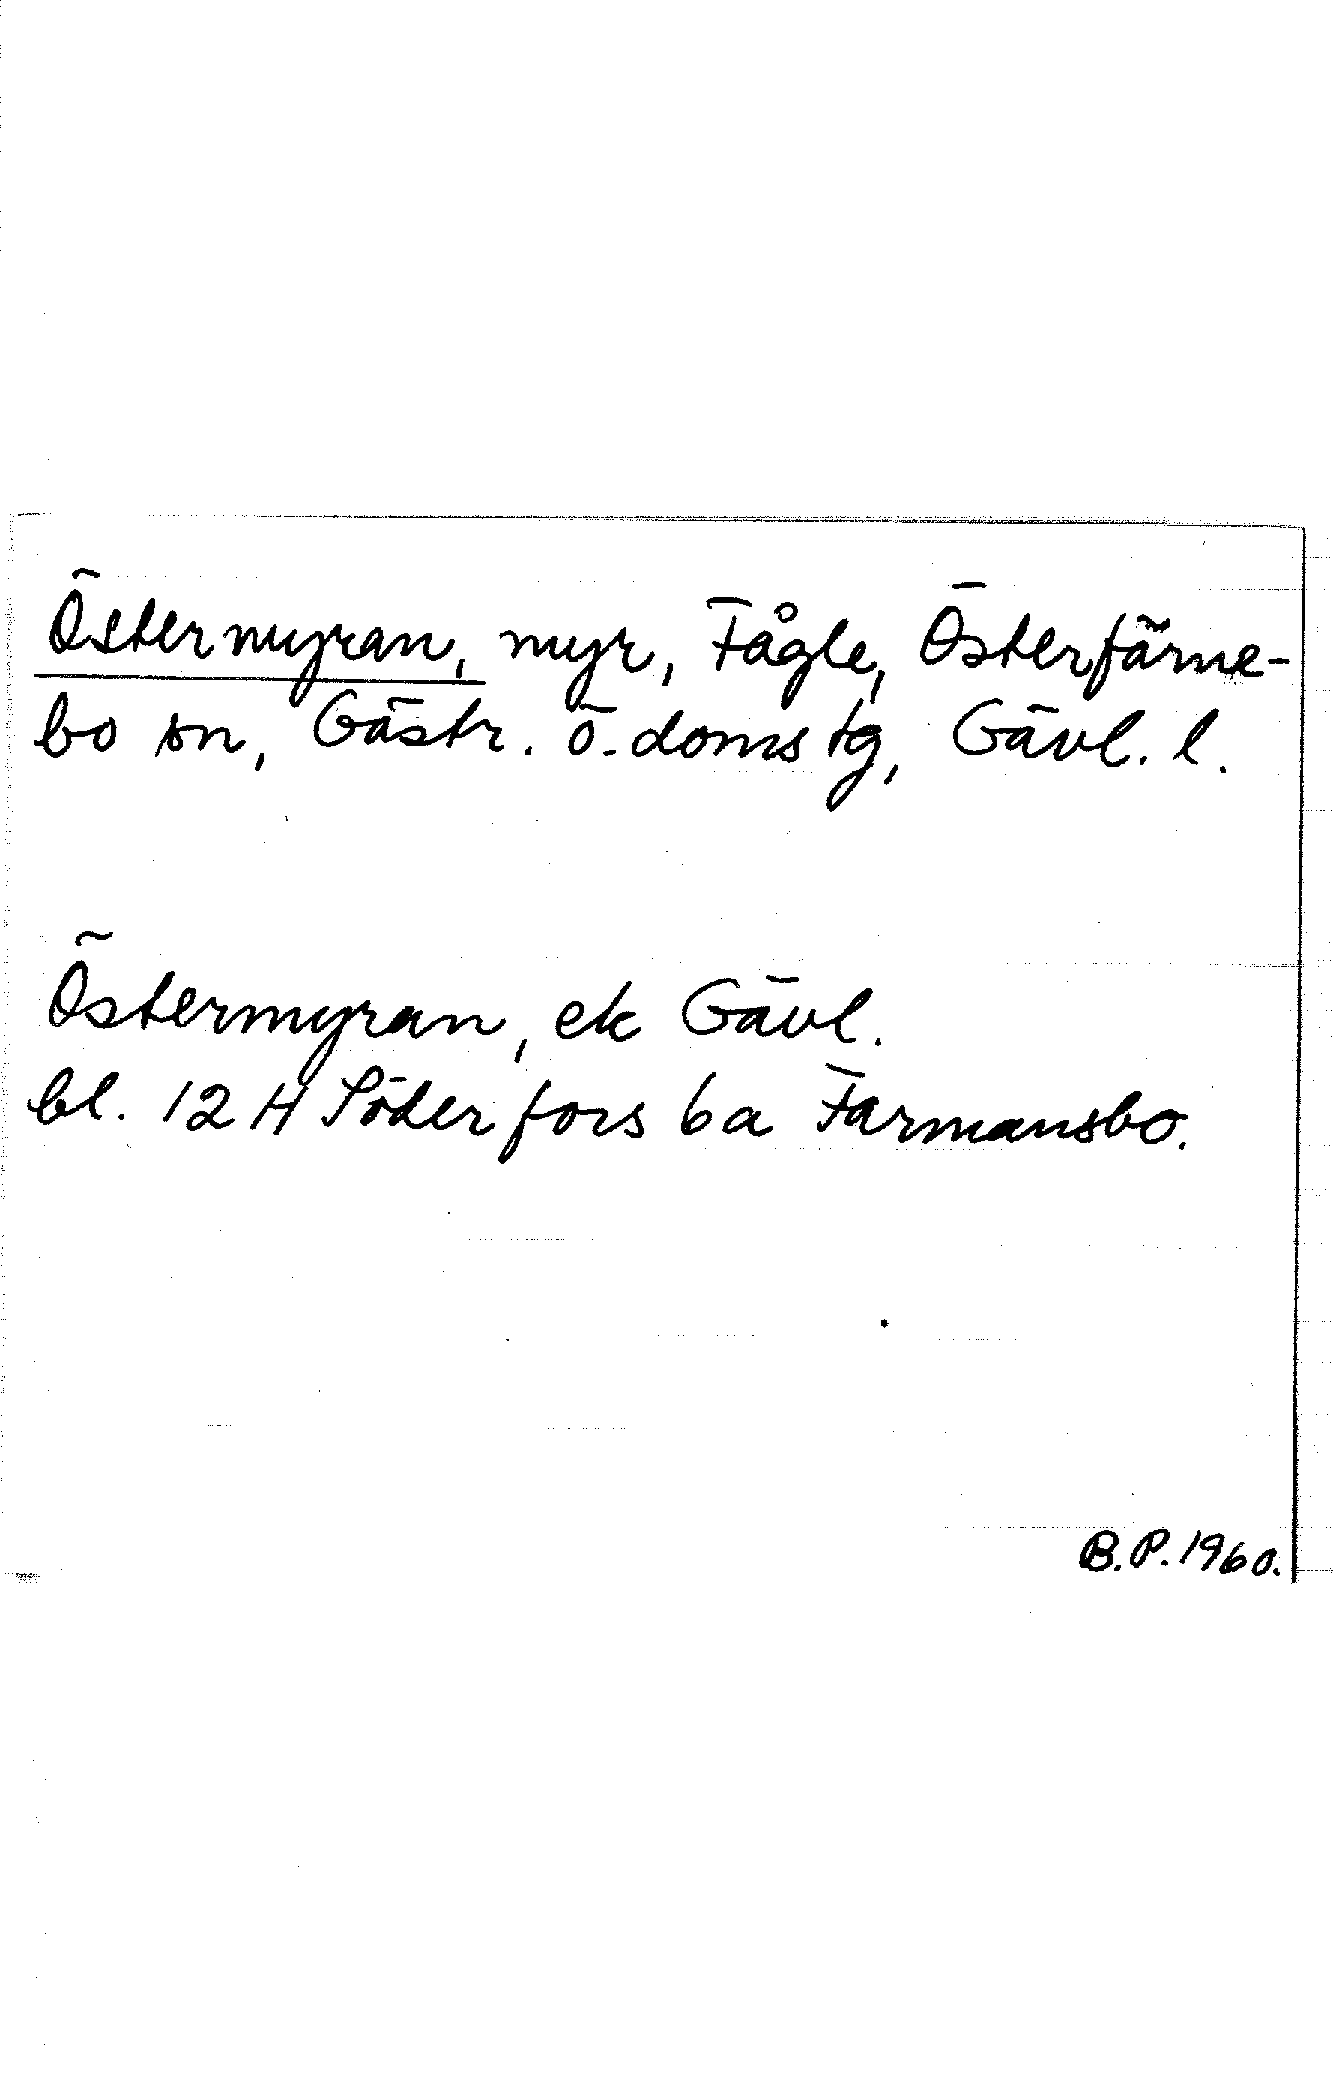 Östermyran, myr, Fågle, Österfärne-
bo sn, Gästr. ö. doms tg, Gävl. l.
Östermyran, ek Gävl.
bl. 12 H Söderfors 6a Farmansbo.
B.P. 1960.